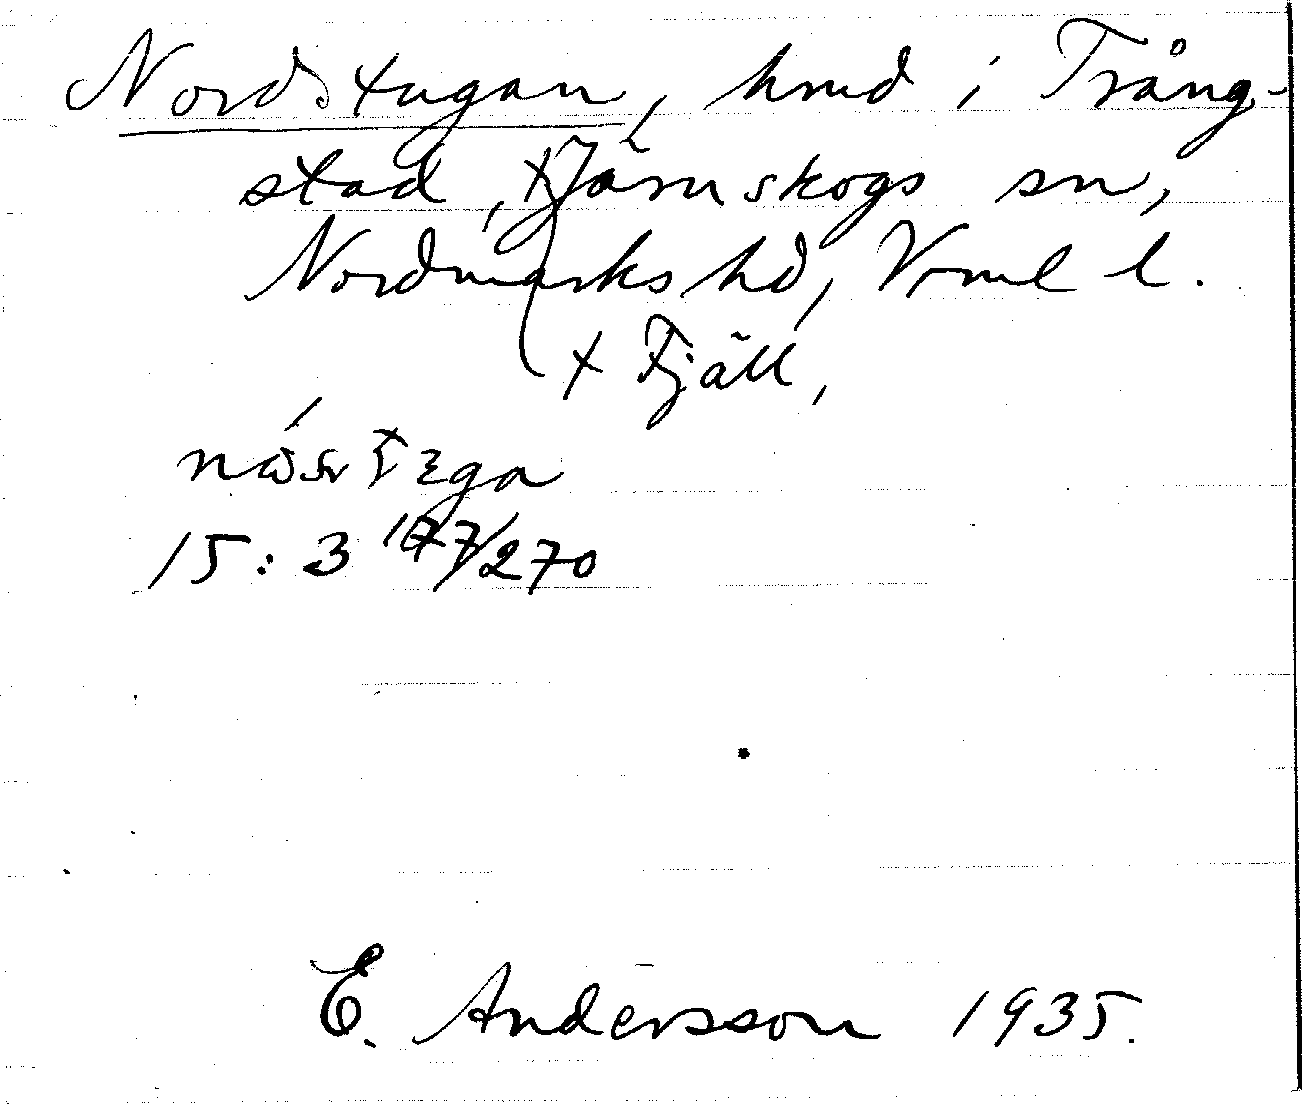 Nordstugan, hmd i Trång-
stad, x Järnskogs sn,
Nordmarks hd, Vrml l.
x Fjäll,
15: 3 177/270
E. Andersson 1935.